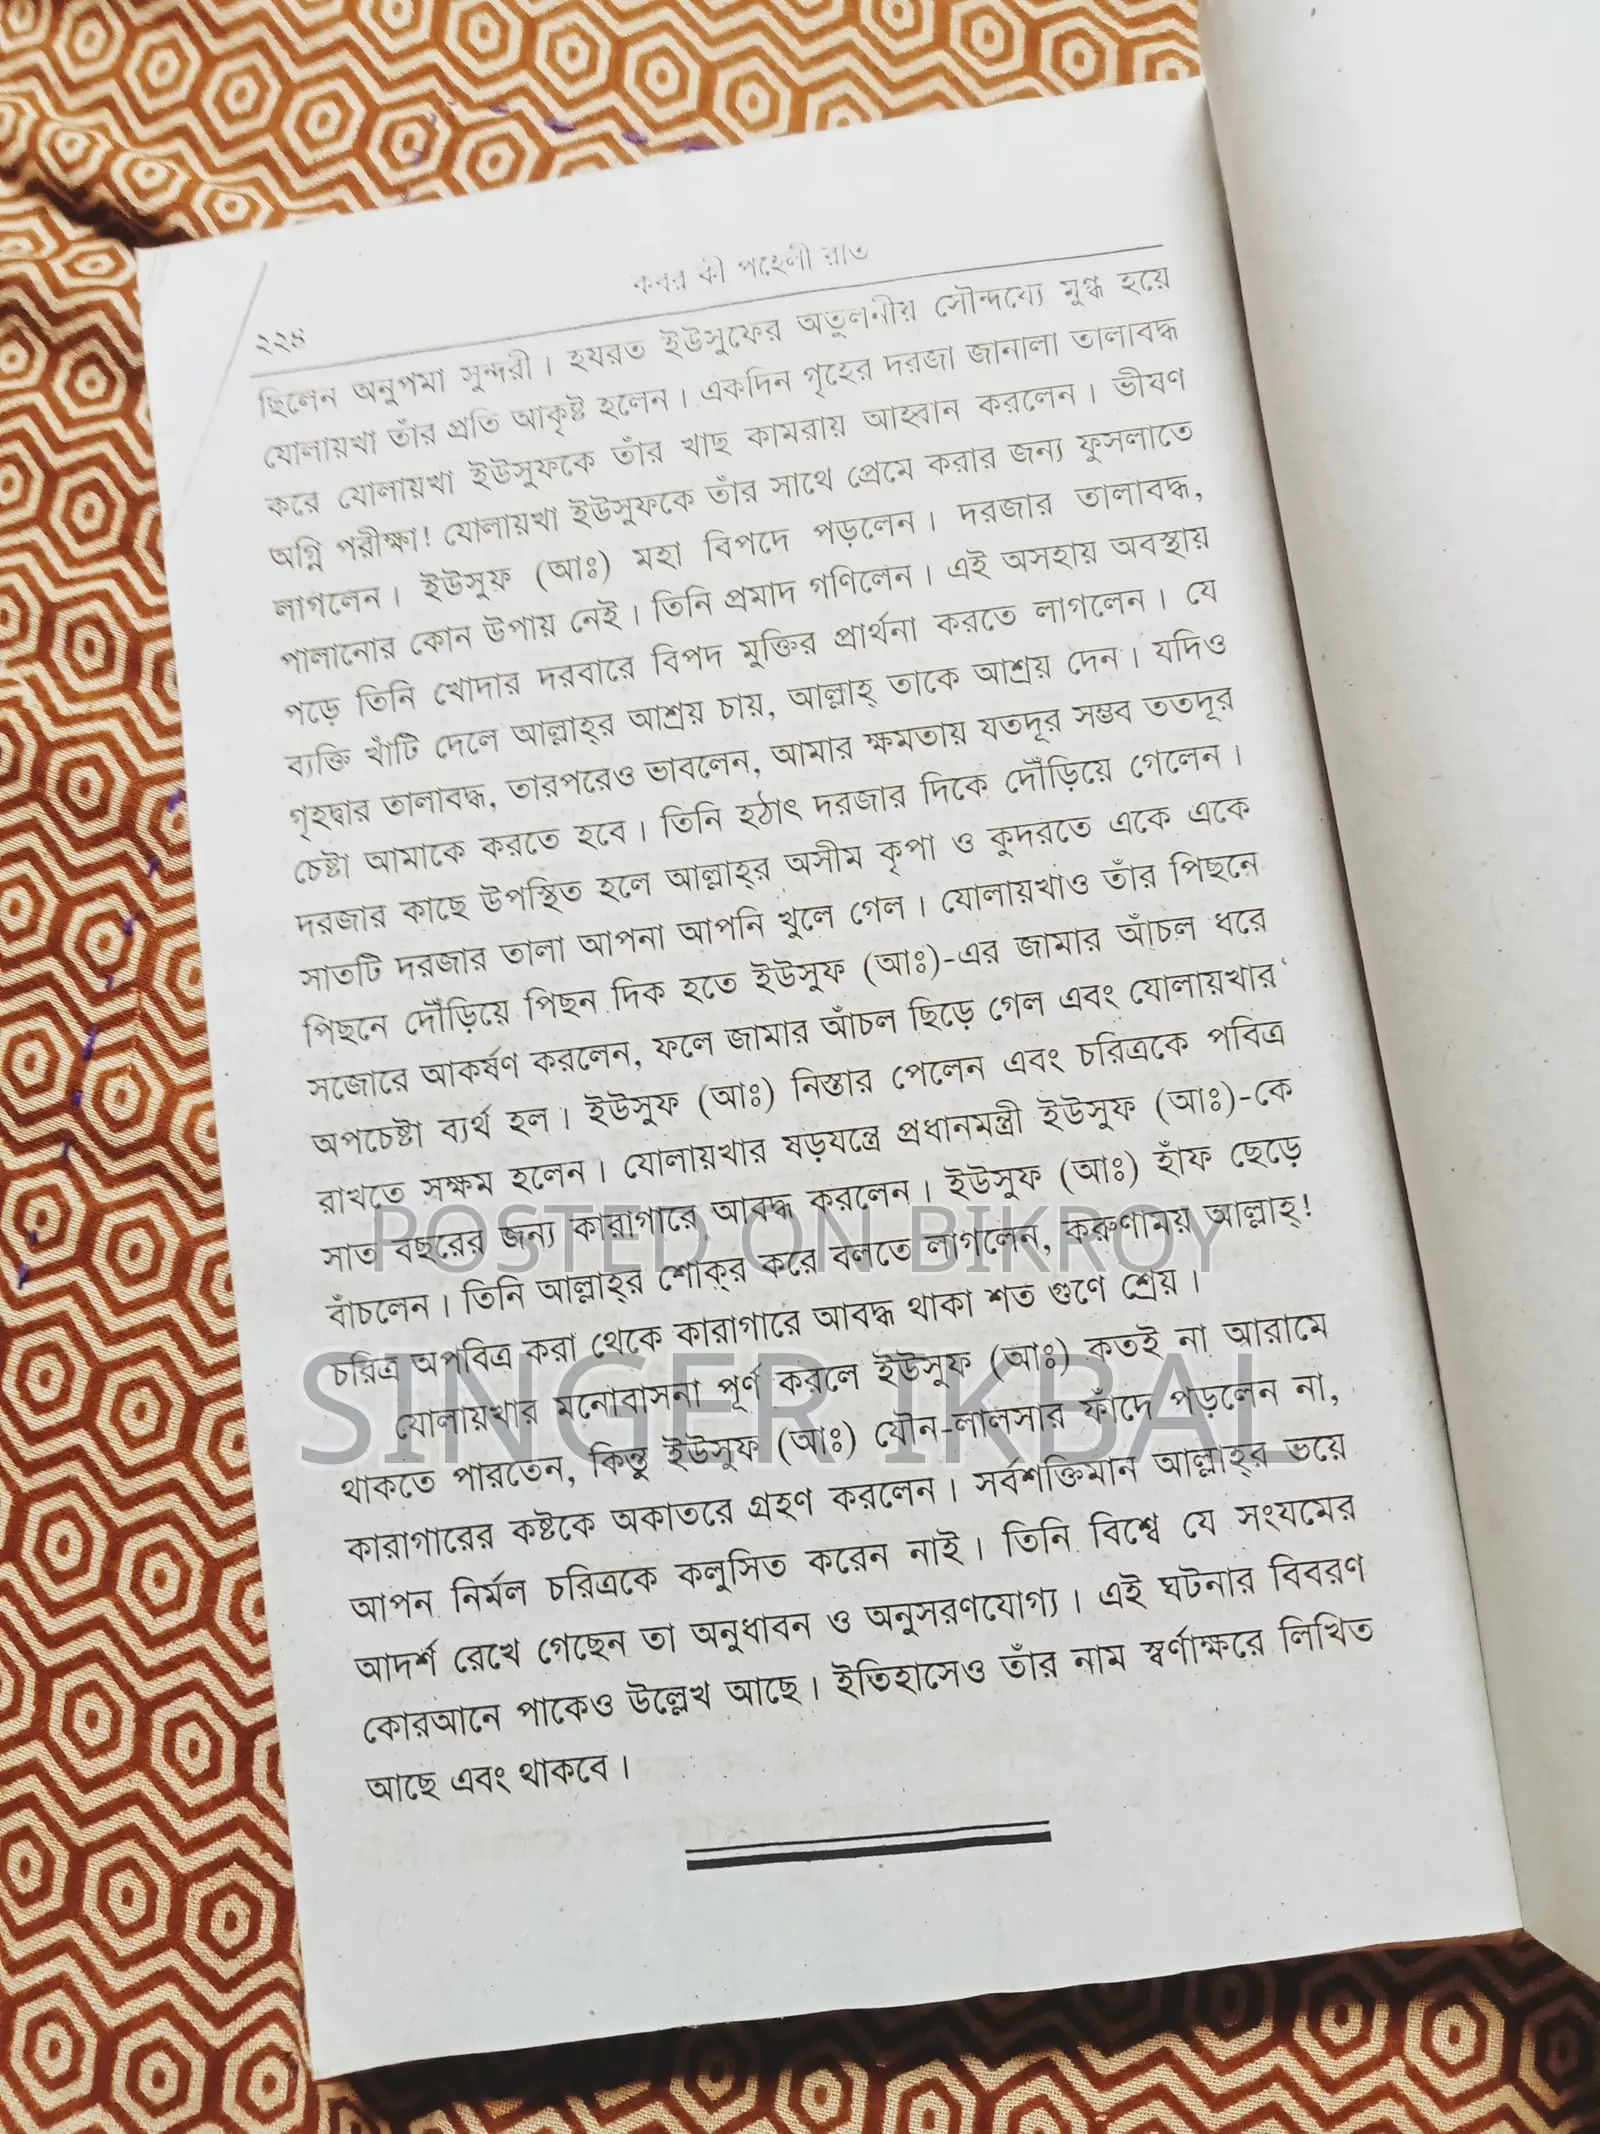 কবর কী পহেলী রাত
২২৪
ছিলেন অনুপমা সুন্দরী। হযরত ইউসুফের অতুলনীয় সৌন্দর্য্যে মুগ্ধ হয়ে
যোলায়খা তাঁর প্রতি আকৃষ্ট হলেন। একদিন গৃহের দরজা জানালা তালাবদ্ধ
করে যোলায়খা ইউসুফকে তাঁর খাছ কামরায় আহ্বান করলেন। ভীষণ
অগ্নি পরীক্ষা! যোলায়খা ইউসুফকে তাঁর সাথে প্রেমে করার জন্য ফুসলাতে
লাগলেন। ইউসুফ (আঃ) মহা বিপদে পড়লেন। দরজার তালাবদ্ধ,
পালানোর কোন উপায় নেই। তিনি প্রমাদ গণিলেন। এই অসহায় অবস্থায়
পড়ে তিনি খোদার দরবারে বিপদ মুক্তির প্রার্থনা করতে লাগলেন। যে
ব্যক্তি খাঁটি দেলে আল্লাহ্‌র আশ্রয় চায়, আল্লাহ্ তাকে আশ্রয় দেন। যদিও
গৃহদ্বার তালাবদ্ধ, তারপরেও ভাবলেন, আমার ক্ষমতায় যতদূর সম্ভব ততদূর
চেষ্টা আমাকে করতে হবে। তিনি হঠাৎ দরজার দিকে দৌঁড়িয়ে গেলেন।
দরজার কাছে উপস্থিত হলে আল্লাহ্‌র অসীম কৃপা ও কুদরতে একে একে
সাতটি দরজার তালা আপনা আপনি খুলে গেল। যোলায়খাও তাঁর পিছনে
পিছনে দৌঁড়িয়ে পিছন দিক হতে ইউসুফ (আঃ)-এর জামার আঁচল ধরে
সজোরে আকর্ষণ করলেন, ফলে জামার আঁচল ছিড়ে গেল এবং যোলায়খার
অপচেষ্টা ব্যর্থ হল। ইউসুফ (আঃ) নিস্তার পেলেন এবং চরিত্রকে পবিত্র
রাখতে সক্ষম হলেন। যোলায়খার ষড়যন্ত্রে প্রধানমন্ত্রী ইউসুফ (আঃ)-কে
সাত বছরের জন্য কারাগারে আবদ্ধ করলেন। ইউসুফ (আঃ) হাঁফ ছেড়ে
বাঁচলেন। তিনি আল্লাহ্‌র শোক্‌র করে বলতে লাগলেন, করুণাময় আল্লাহ্!
চরিত্র অপবিত্র করা থেকে কারাগারে আবদ্ধ থাকা শত গুণে শ্রেয়।
যোলায়খার মনোবাসনা পূর্ণ করলে ইউসুফ (আঃ) কতই না আরামে
থাকতে পারতেন, কিন্তু ইউসুফ (আঃ) যৌন-লালসার ফাঁদে পড়লেন না,
কারাগারের কষ্টকে অকাতরে গ্রহণ করলেন। সর্বশক্তিমান আল্লাহ্‌র ভয়ে
আপন নির্মল চরিত্রকে কলুসিত করেন নাই। তিনি বিশ্বে যে সংযমের
আদর্শ রেখে গেছেন তা অনুধাবন ও অনুসরণযোগ্য। এই ঘটনার বিবরণ
কোরআনে পাকেও উল্লেখ আছে। ইতিহাসেও তাঁর নাম স্বর্ণাক্ষরে লিখিত
আছে এবং থাকবে।
POSTED ON BIKROY
SINGER IKBAL